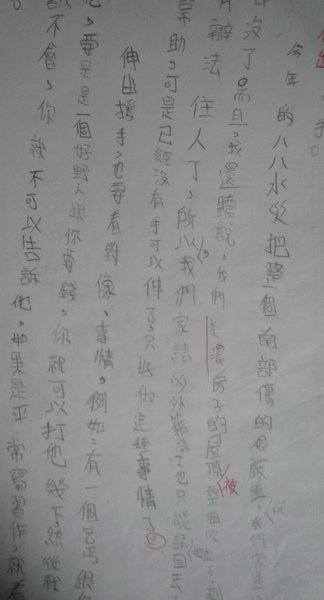 出 手。
今年的八八水災把整個南部傷的很嚴重,我們家
沒了,而且,我還聽說,我們美濃房子的屋頂整個被吹走了,
有辦法住人了,所以,我們家請的外籍勞工也只能請回去
幫助,可是已經沒有手可以伸了,只好做這種事情了。
伸出援手,也要看對像、事情。例如:有一個乞丐跟你
他,要是是一個好野人跟你要錢,你就可以打他幾下,然後就
不會,你就不可以告訴他。如果是平常寫習作,就看